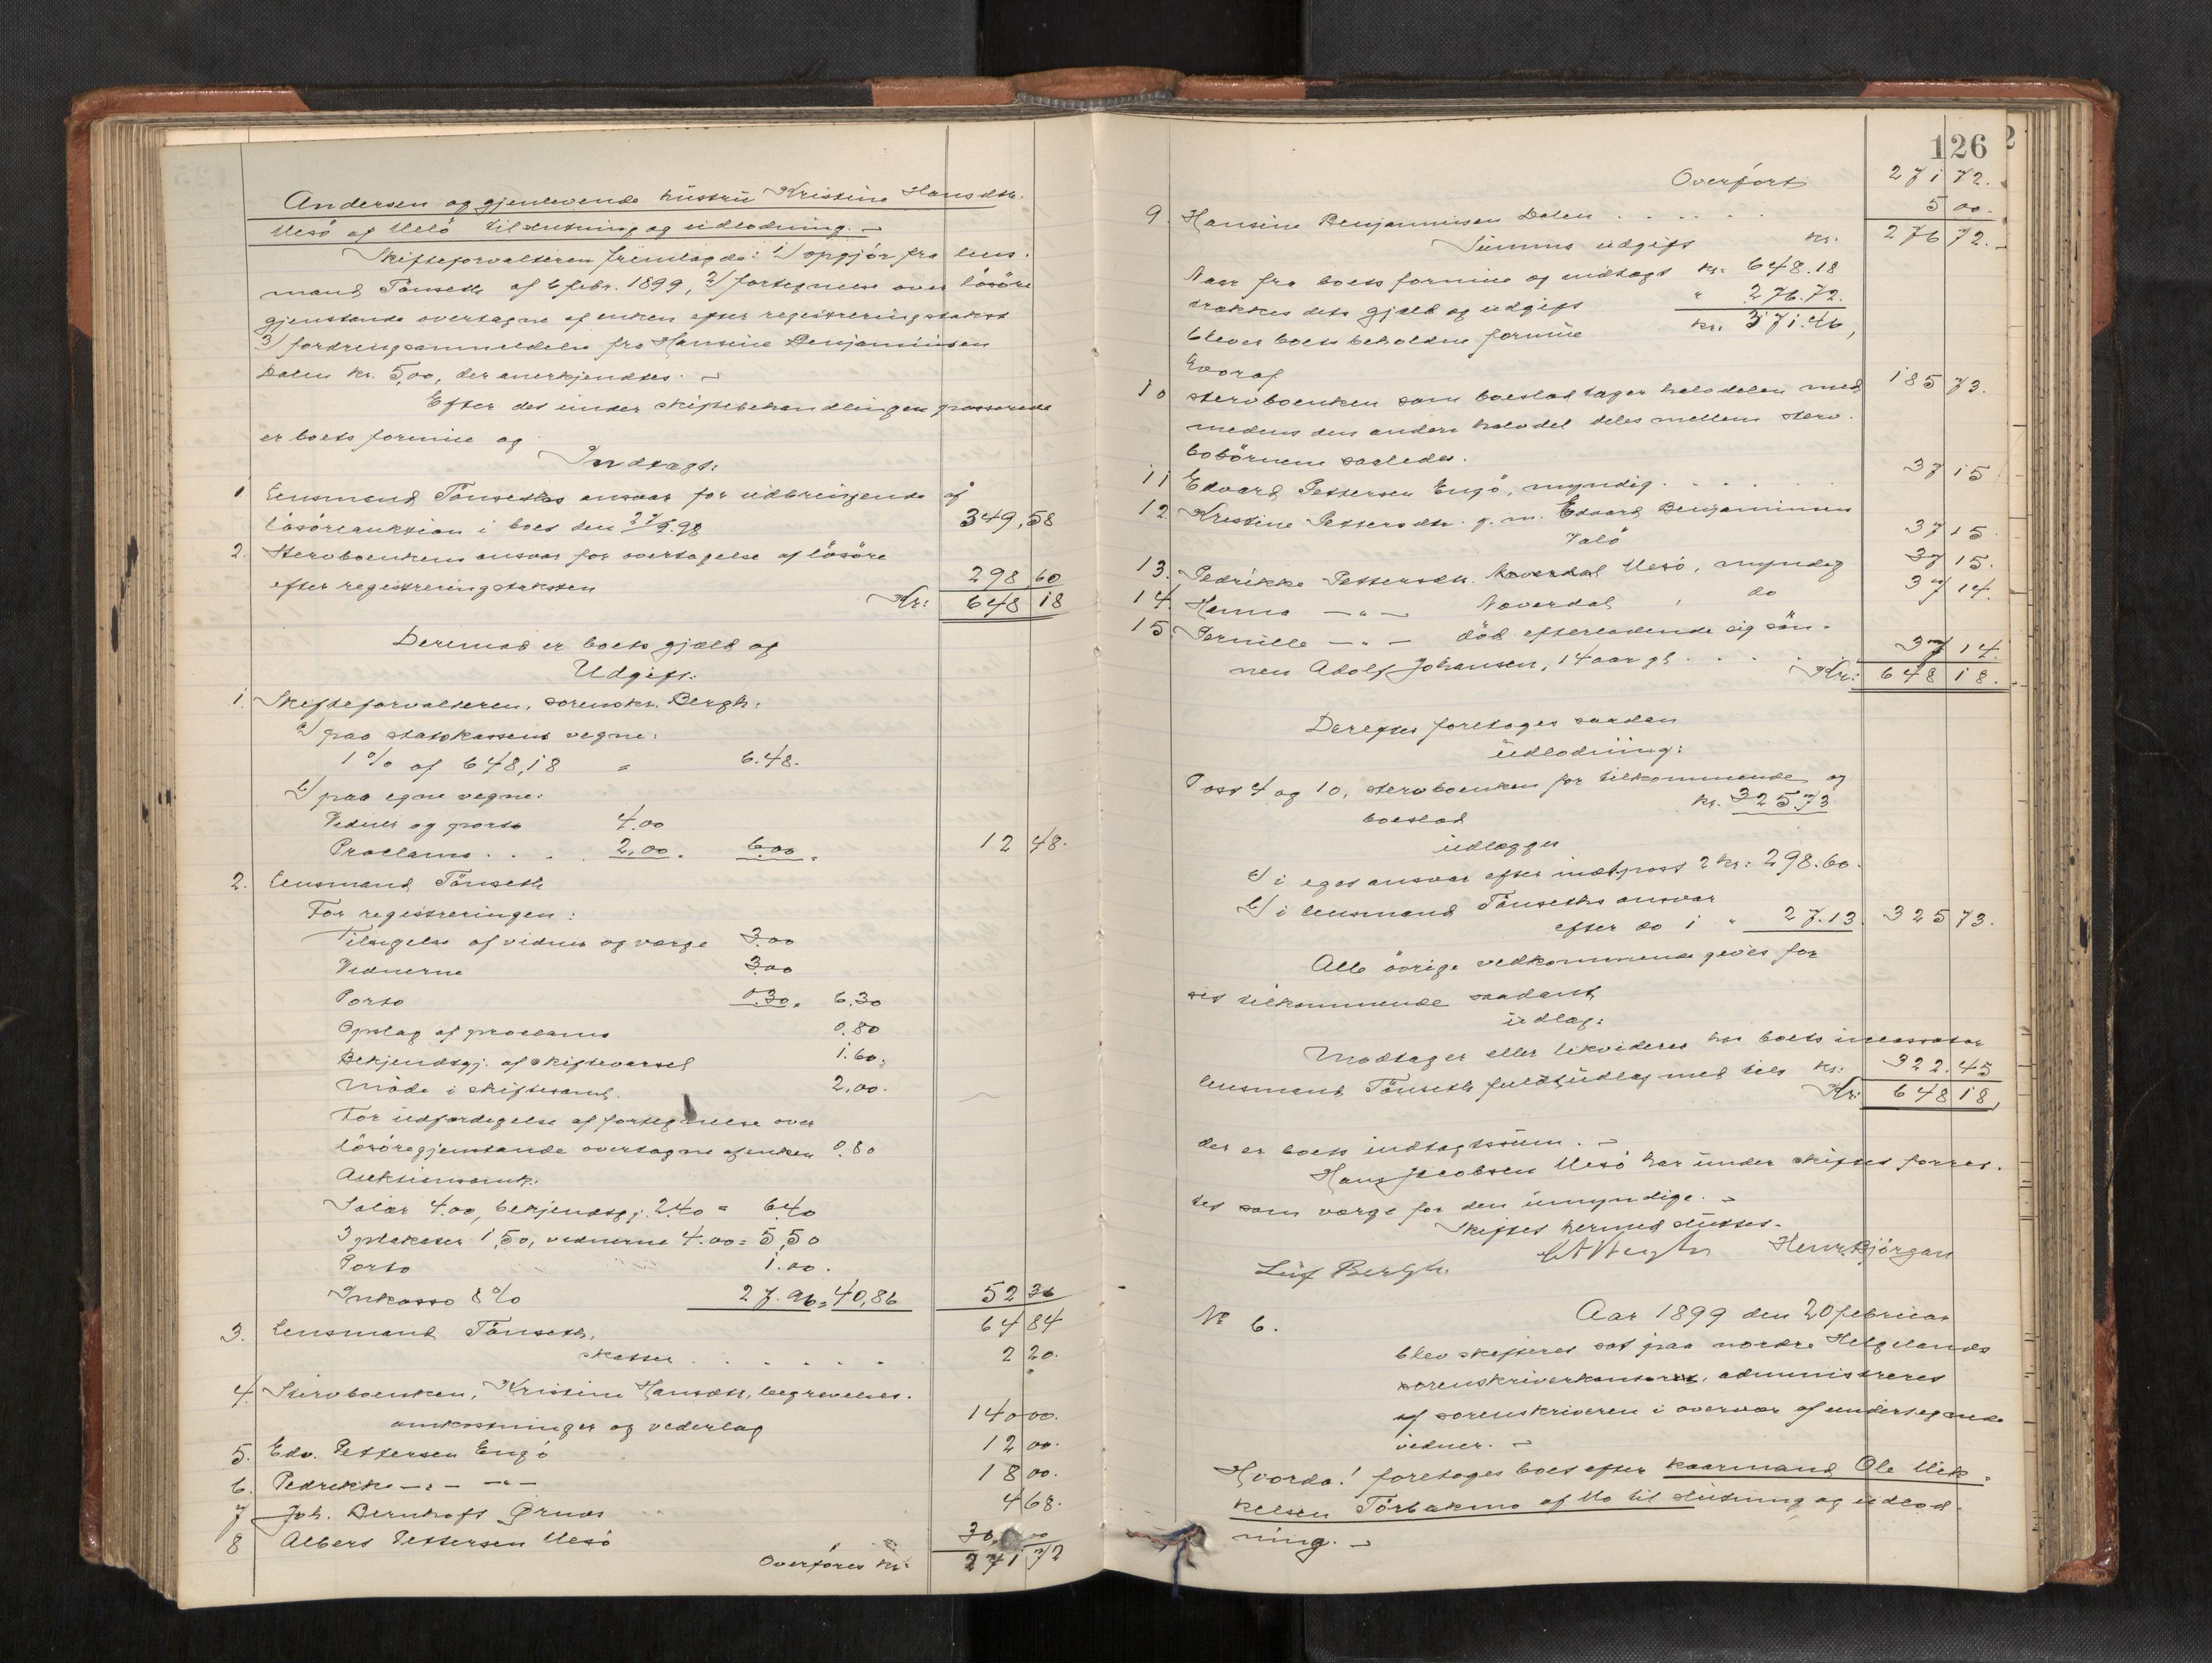 Andersen og gjenlevende hustru Kristine Hansdtr.
Uesö af Uelö til slutning og udlodning. –
Skifteforvalteren fremlagde: 1) opgjör fra lens-
mand Tönseth af 6 febr. 1899, 2) fortegnelse over lösöre
gjenstande overtagne af enken efter registreringstakst
3) fordringsanmeldelse fra Hansine Benjaminsen
Dalen kr. 5,00, der anerkjendtes. –
Efter det under skiftebehandlingen passerede
er boets formue og
Indtægt:
1 Lensmand Tönseths ansvar for udbringende af
lösöreauktion i boet den 27/5.98 349,58
2. Stervboenkens ansvar for overtagelse af lösöre
efter registreringstaksten 298 60
Kr: 648 18
Derimod er boets gjæld og
Udgift:
1. Skifteforvalteren, sorenskr. Bergh:
a) paa statskassens vegne:
1 % af 648,18 = 6.48.
b) paa egne vegne:
Vidner og porto 4.00
Proclama . . . . 2,00. 6.00 = 12 48.
2. Lensmand Tönseth
For registreringen:
Tilsigelse af vidner og værge 3.00
Vidnerne 3.00
Porto 0.30 = 6.30
Opslag af proclama 0.80
Bekjendtgj. af skiftevarsel 1.60.
Möde i skiftesaml. 2,00.
For udfærdigelse af fortegnelse over
lösöregjenstande overtagne af enken 0.80
Auktionsomk:
Salær 4.00, bekjendtgj. 2.40 = 6.40
3 plakater 1,50, vidnerne 4.00 = 5,50
Porto 1.00.
Inkasso 8% 27.96 = 40,86 52 36
64 84
3. Lensmand Tönseth,
skatter . . . . . . 2 20.
4. Stervboenken, Kristine Hansdtr, begravelses-
omkostninger og vederlag 140 00.
5. Edv. Pettersen Engö 12 00.
6. Pedrikke –"– –"– 18 00.
7 Joh. Bernhoft Ørnes 4 68.
8 Albert Pettersen Uesö 30,00
Overföres kr: 271 72
126
Overfört 271 72.
9. Hansine Benjaminsen Dalen . . . . . 5 00.
Summa udgift kr. 276 72.
Naar fra boets formue og indtægt kr. 648.18
trækkes dets gjæld og udgift " 276.72.
bliver boets beholdne formue kr. 371.46,
hvoraf
10 stervboenken som boeslod tager halvdelen med 185 73.
medens den anden halvdel deles mellem sterv-
bobörnene saaledes.
11 Edvard Pettersen Engö, myndig . . . . . . 37 15
12. Kristine Pettersdtr. g. m. Edvard Benjaminsen
Valö 37 15
13. Pedrikke Pettersdtr. Uesö, myndig 37 15.
14 Hanna –"– Naverdal, do 37 14.
15 Pernille –"– död efterladende sig sön-
nen Adolf Johansen, 14 aar gl. . . . . 37 14.
Kr: 648 18.
Derefter foretoges saadan
udlodning:
Post 4 og 10, stervboenken for tilkommende og
boeslod kr. 325.73
udlægges
a) i eget ansvar efter indt.post 2 kr: 298.60.
b) i lensmand Tönseths ansvar
efter do 1 " 27.13. 325 73.
Alle övrige vedkommende gives for
sit tilkommende saadant
udlæg:
Modtager eller likvideres hos boets incassator
lensmand Tönseth fuldt udlæg med tils kr: 322.45
Kr: 648 18,
der er boets indtægtssum. –
Hans Jacobsen Uesö har under skiftet forret-
tet som værge for den umyndige. –
Skiftet hermed sluttet.
Leif Bergh. Henr. Björgan
No 6. Aar 1899 den 20 februar
blev skifteret sat paa nordre Helgelands
sorenskriverkontor, administreret
af sorenskriveren i overvær af undertegnede
vidner. –
Hvorda! foretoges boet efter kaarmand Ole Mik-
kelsen Törbakmo af Mo til slutning og udlod-
ning. –